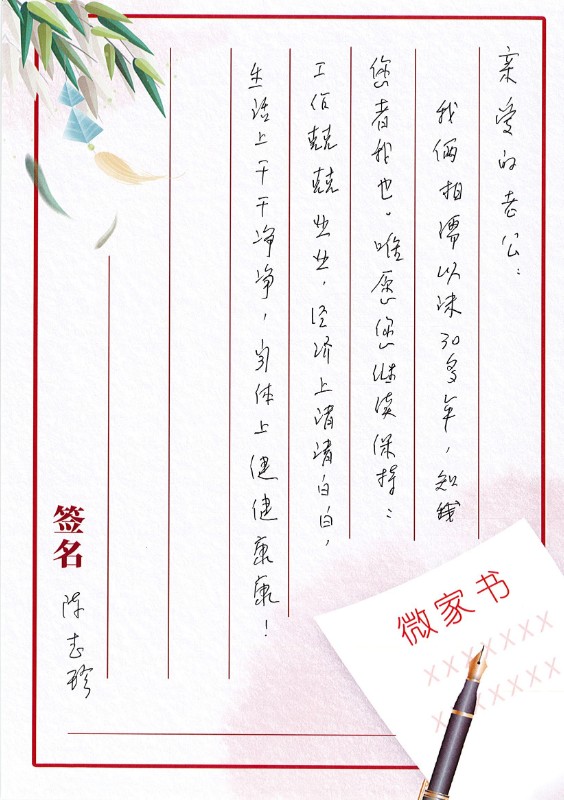 亲爱的老公：
我俩相濡以沫30多年，知我
您者我也。唯愿您继续保持：
工作兢兢业业，经济上清清白白，
生活上干干净净，身体上健健康康！
签名
陈志珍
微家书
XXXXXXX
XXXXXXX